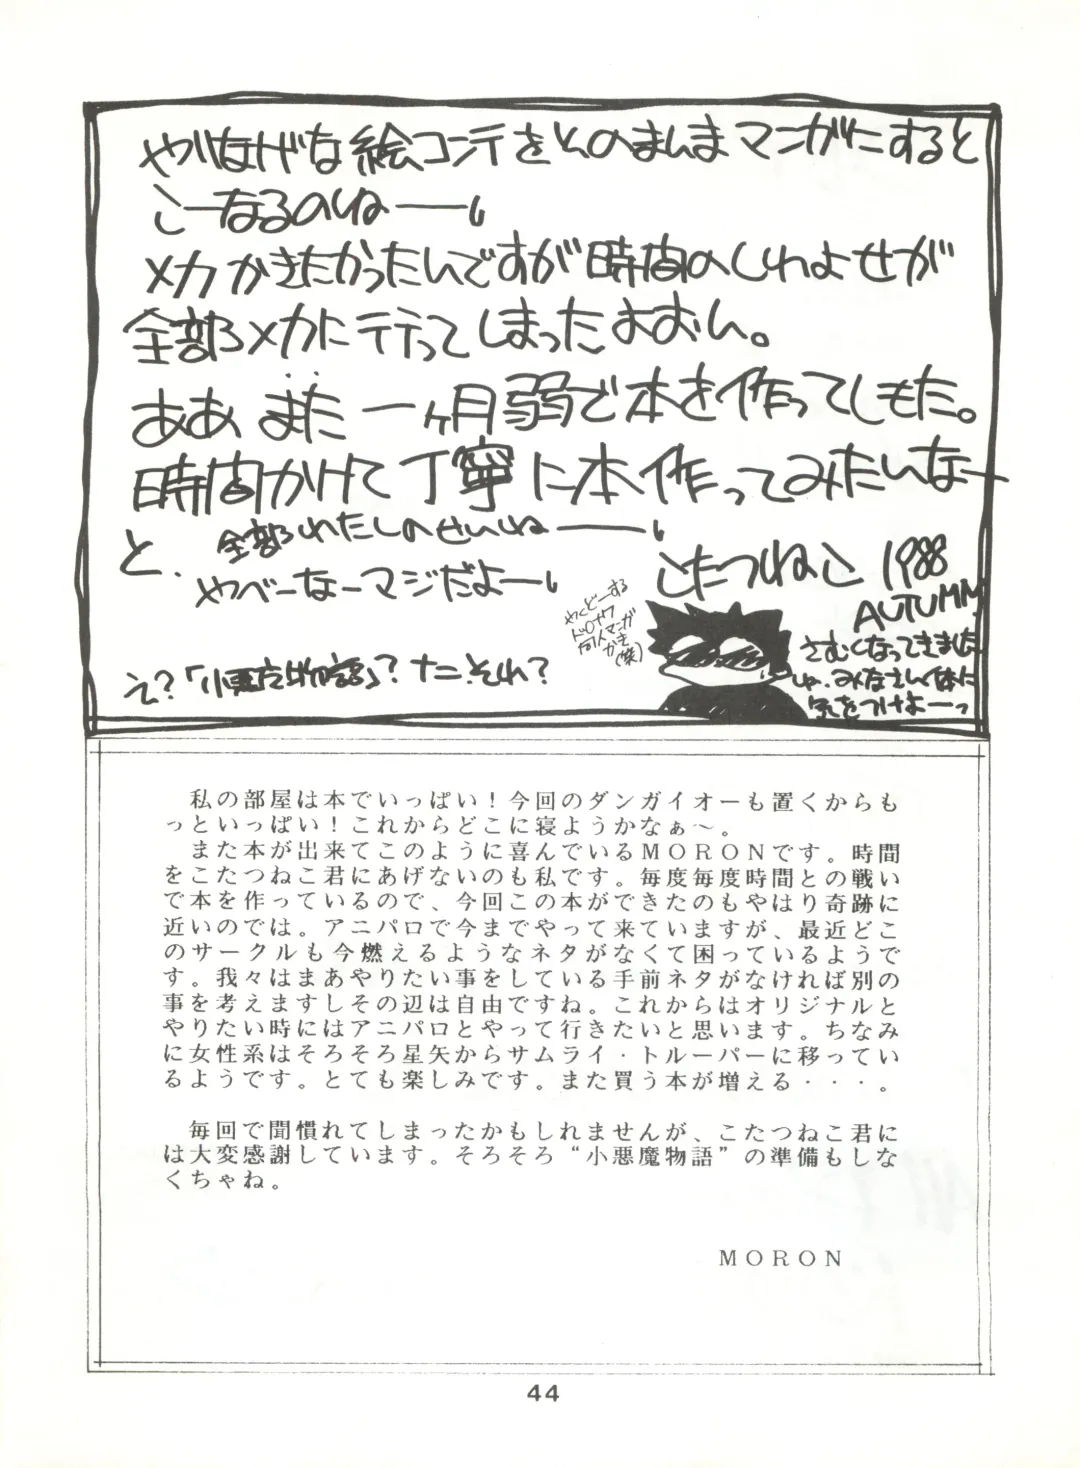 やりなげな絵コンテをそのまんまマンガにすると
こーなるのねーー。
メカかきたかったんですが時間のしわよせが
全部メカに行ってしまったよおん。
ああ また 一ヶ月弱で本を作ってしもた。
時間かけて丁寧に本作ってみたいなー
と. 全部わたしのせいねーー。
やべーなーマジだよー。
こたつねこ 1988
AUTUMN
さむくなってきました
みなさん体に
気をつけよーっ
え?「小悪魔物語」? ナニそれ?
私の部屋は本でいっぱい!今回のダンガイオーも置くからも
っといっぱい!これからどこに寝ようかなぁ〜。
また本が出来てこのように喜んでいるMORONです。時間
をこたつねこ君にあげないのも私です。毎度毎度時間との戦い
で本を作っているので、今回この本ができたのもやはり奇跡に
近いのでは。アニパロで今までやって来ていますが、最近どこ
のサークルも今燃えるようなネタがなくて困っているようで
す。我々はまあやりたい事をしている手前ネタがなければ別の
事を考えますしその辺は自由ですね。これからはオリジナルと
やりたい時にはアニパロとやって行きたいと思います。ちなみ
に女性系はそろそろ星矢からサムライ・トルーパーに移ってい
るようです。とても楽しみです。また買う本が増える・・・。
毎回で聞慣れてしまったかもしれませんが、こたつねこ君に
は大変感謝しています。そろそろ“小悪魔物語”の準備もしな
くちゃね。
MORON
44